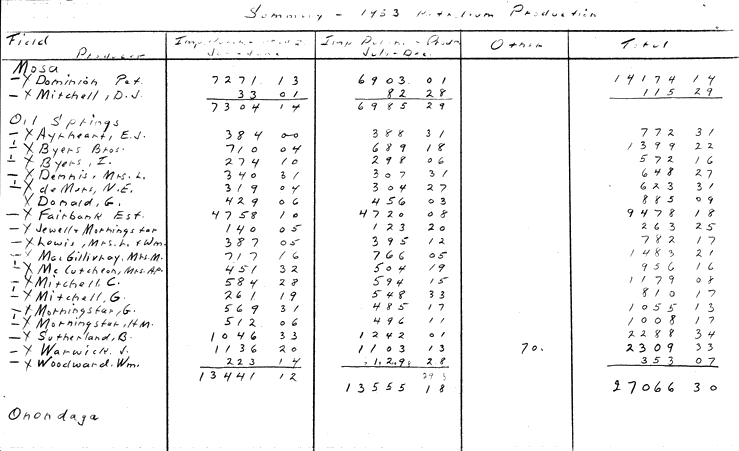 Summary - 1953 Petroleum Production
Field Producer Jan-June Imp July-Dec. Other Total
Mosa
- X Dominion Pet. 7271 13 6903 01 14174 14
- X Mitchell, D.J. 33 01 82 28 115 29
7304 14 6985 29
Oil Springs
- X Ayrheart, E.J. 384 00 388 31 772 31
X Byers Bros. 710 04 689 18 1399 22
X Byers, I. 274 10 298 06 572 16
X Dennis, Mrs. L. 340 31 307 31 648 27
X deMars, N.E. 319 04 304 27 623 31
X Donald, G. 429 06 456 03 885 09
- X Fairbank Est. 4758 10 4720 08 9478 18
- X Jewell & Morningstar 140 05 123 20 263 25
- X Lewis, Mrs. L. & Wm. 387 05 395 12 782 17
X MacGillivray, Mrs. M. 717 16 766 05 1483 21
X McCutcheon, Mrs. A.P. 451 32 504 19 956 16
- X Mitchell C. 584 28 594 15 1179 08
- X Mitchell, G. 261 19 548 33 810 17
- X Morningstar, G. 569 31 485 17 1055 13
- X Morningstar, H.M. 512 06 496 11 1008 17
- X Sutherland, B. 1046 33 1242 01 2288 34
- X Warwick, J. 1136 20 1103 13 70. 2309 33
- X Woodward, Wm. 223 14 129 28 353 07
13441 12 13555 18 27066 30
Onondaga